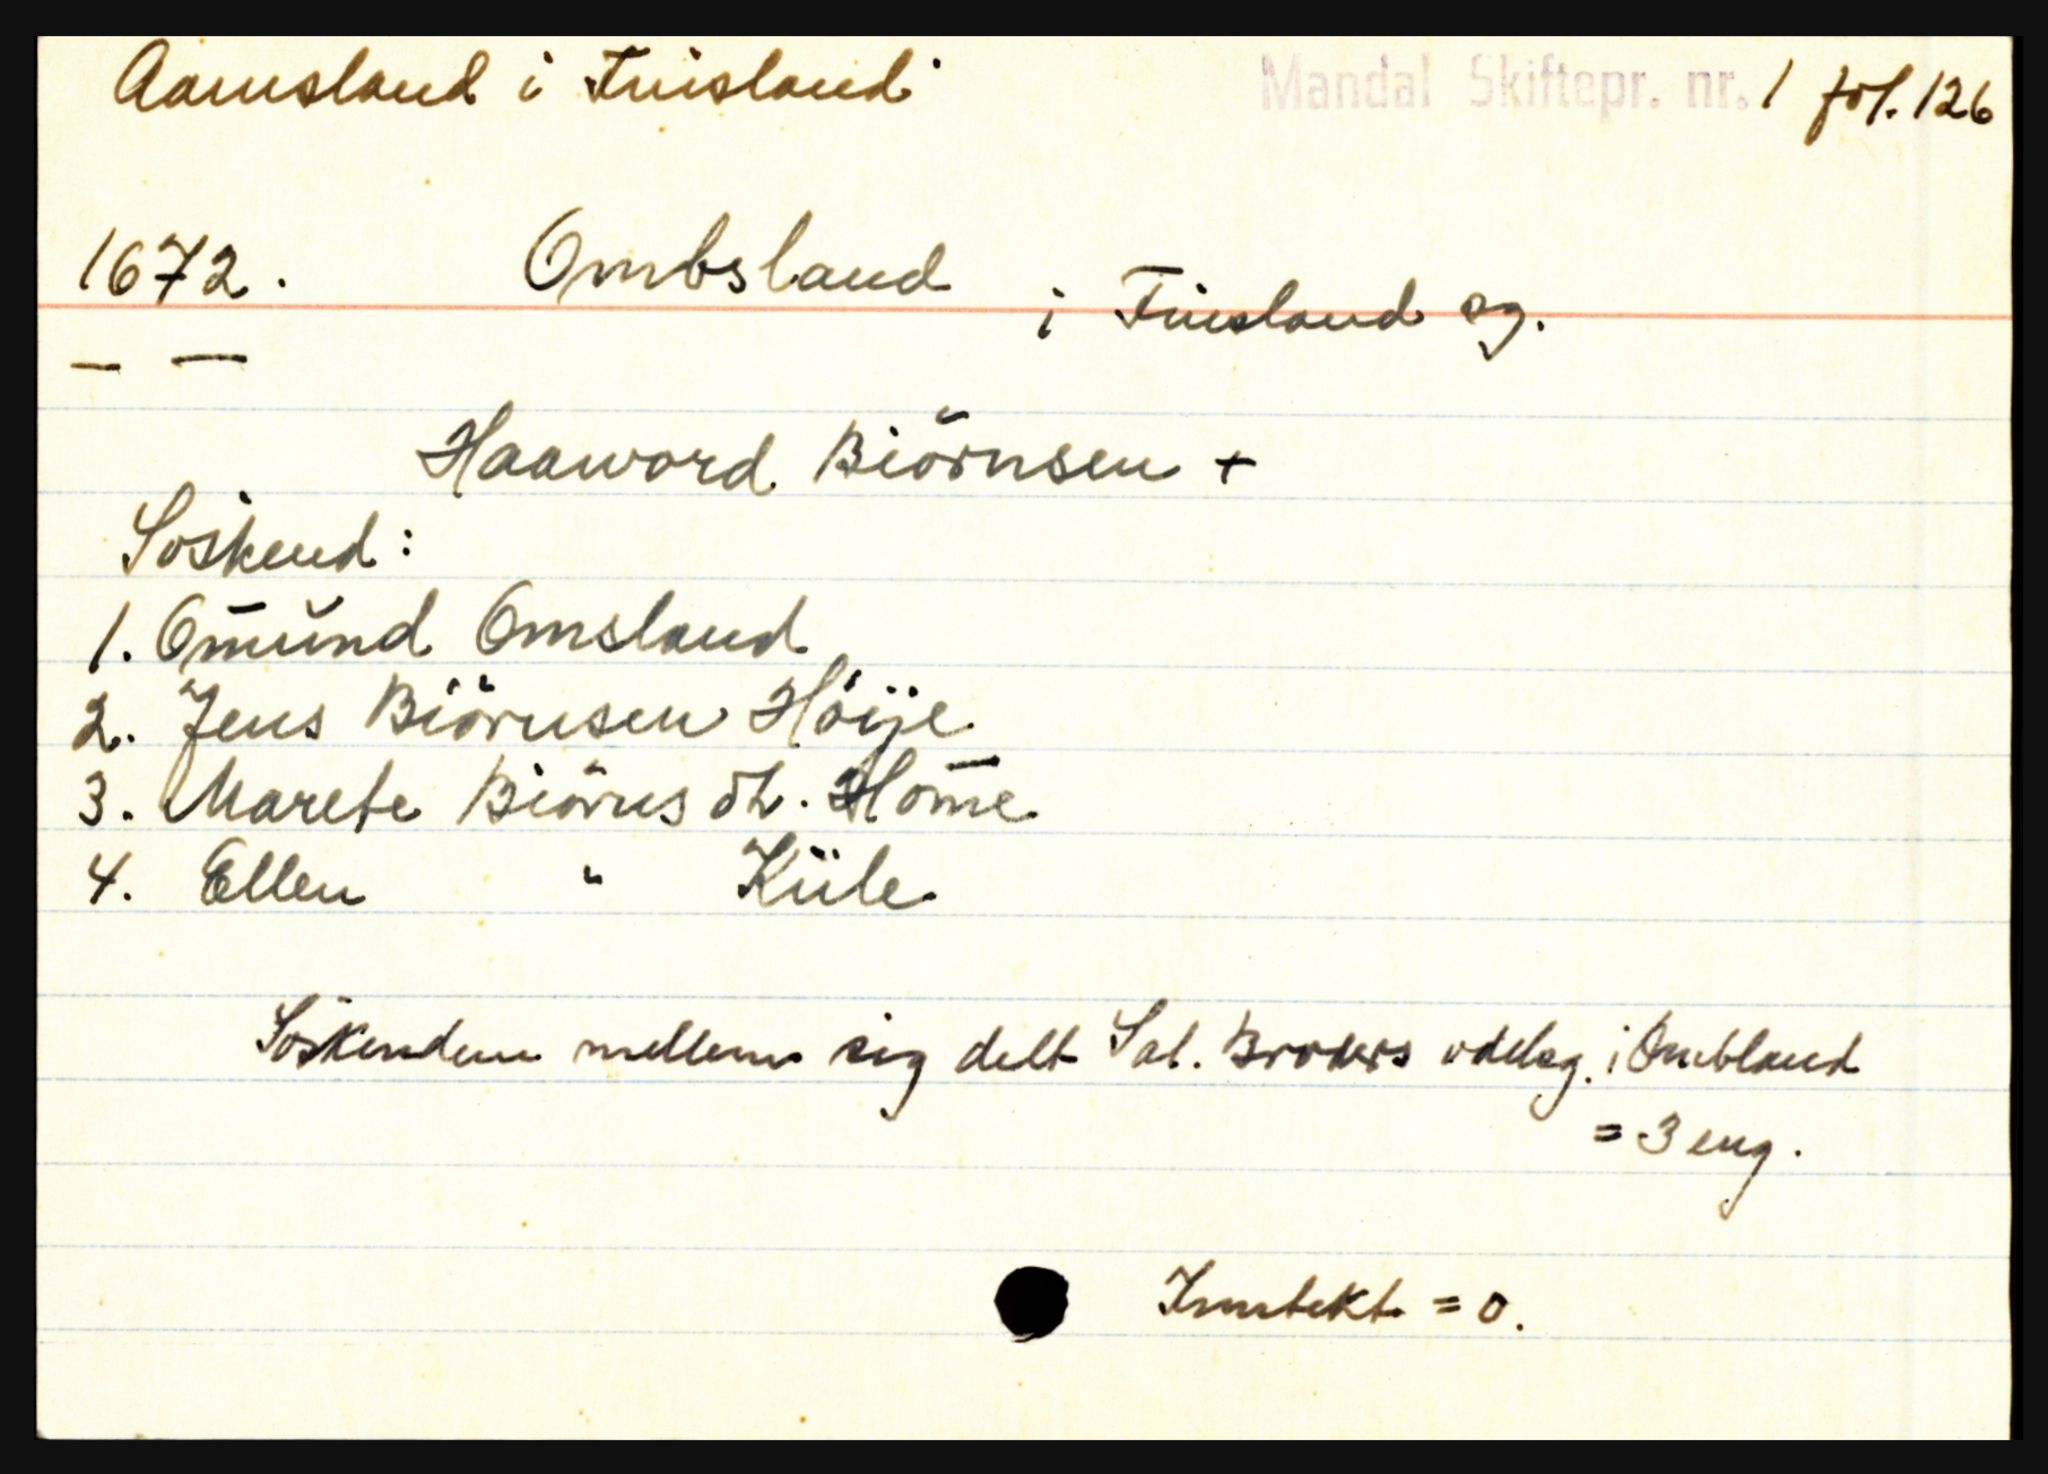 Aamsland i Finsland
Mandal Skiftepr. nr. 1 fol. 126
1672. Ombsland i Finsland sg.
— —
Haaword Biörnsen +
Söskend:
1. Om̄ŭnd Omsland
2. Jens Biörnsen Höije
3. Marete Biörns dt. Hom̄e
4. Ellen " Kiile
Söskendene mellem sig delt Sal. Broders odelsg. i Ombland
= 3 eng.
Inntekt = 0.